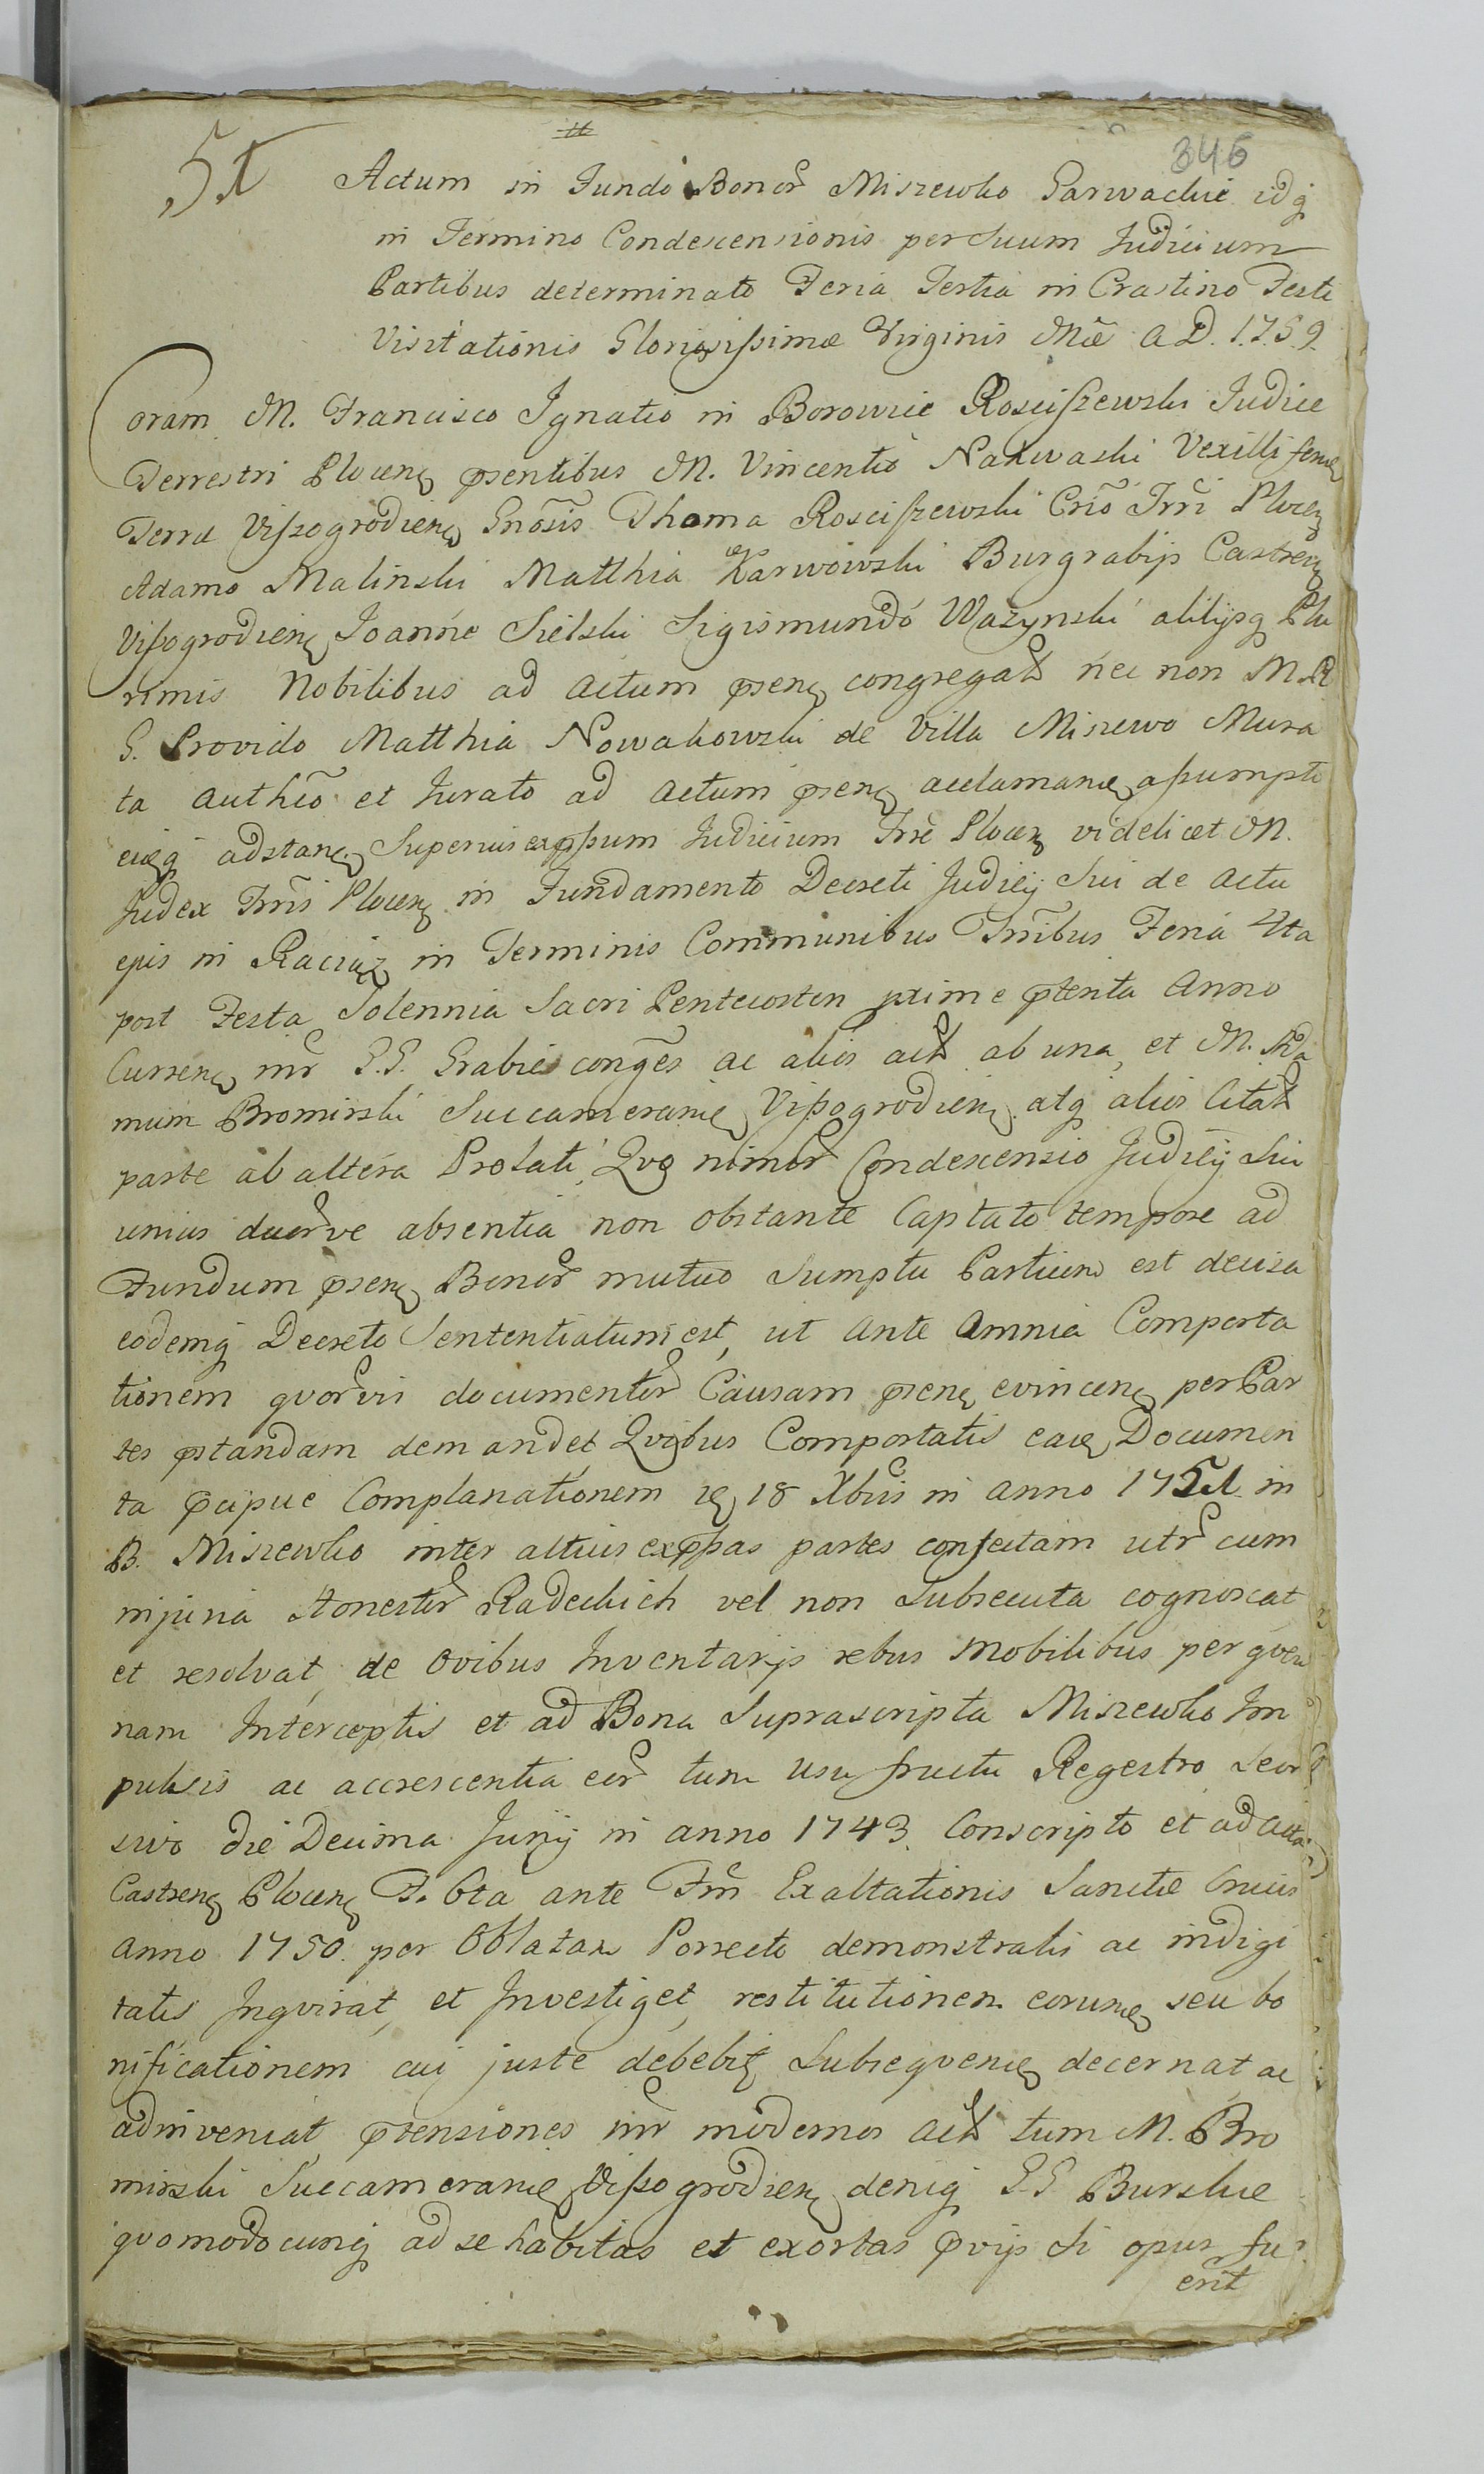 51
346
Actum in Fundo Bonor Miszewko Garwackie idq
in Termino Condescensionis per Suum Judicium
Partibus determinato Feria Tertia in Crastino Festi
Visitationis Gloriosissimæ Virginis Mæ A D. 1.7.5.9.
Coram M. Francisco Ignatio in Borowie Rosciszewski Judice
Terrestri Plocen psentibus M. Vincentio Nakwaski Vexillifero
Terræ Vissogrodien Gnosis Thoma Rosciszewski Crio Trri Plocen
Adamo Malinski Matthia Karwowski Burgrabijs Castren
Vissogrodien Joanne Sielski Sigismundo Wazynski aliijsq Plu
rimis Nobilibus ad Actum psen congregat nec non M. R
G. Provido Matthia Nowakowski de Villa Miszewo Mura
ta Authco et Jurato ad Actum psen acclaman assumpto
eiq adstan Superius expssum Judicium Trre Plocen videlicet M.
Judex Trris Plocen in Fundamento Decreti Judicij Sui de Actu
ejus in Raciąz in Terminis Communibus Trribus Feria 4ta
post Festa Solennia Sacri Pentecosten prime ptenta Anno
Curren inr G.G. Grabie conges ac alios act ab una, et M. Ada
mum Bromirski Succamerarie Vissogrodien atq alios Citat
parte ab altera Prolati, Quo nimir Condescensio Judicij Sui
unius duorve absentia non obstante Captato tempore ad
Fundum psen Bonor mutuo Sumptu Partium est decisa
eodemq Decreto Sententiatum est, ut Ante Omnia Comporta
tionem quorvis documentor Causam psen evincen per Par
tes pstandam demandet, Quibus Comportatis ea Documen
ta pcipue Complanationem 18 Xbris in Anno 1751 in
B. Miszewko inter altius expssas partes confectam utr cum
injuria Honestor Radeckich vel non Subsecuta cognoscat
et resolvat, de Ovibus Inventarijs rebus Mobilibus per
nam Interceptis et ad Bona Suprascripta Miszewko Im
pulsis ac accrescentia eor tum Usu fructu Regestro Seor
sivo die Decima Junij in Anno 1743 Conscripto et ad Acta
Castren Plocen F. 6ta ante Fm Exaltationis Sanctæ Crucis
Anno 1750. per Oblatam Porrecto demonstratis ac indigi
tatis Inquirat, et Investiget, restitutionem eorum seu bo
nificationem cui juste debebit Subsequen decernat ac
adinveniat ptensiones inr modernos act tum M. Bro
mirski Succamerarie Vissogrodien deniq G.G Burskie
quomodocunq ad se habitas et exortas pvijs Si opus fu
erit